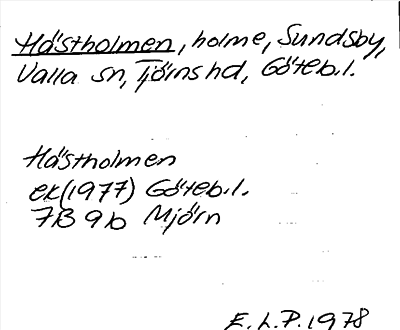 Hästholmen, holme, Sundsby,
Valla sn, Tjörns hd, Göteb.l.
Hästholmen
ek(1977) Göteb.l.
7B 9b Mjörn
E.L.P. 1978